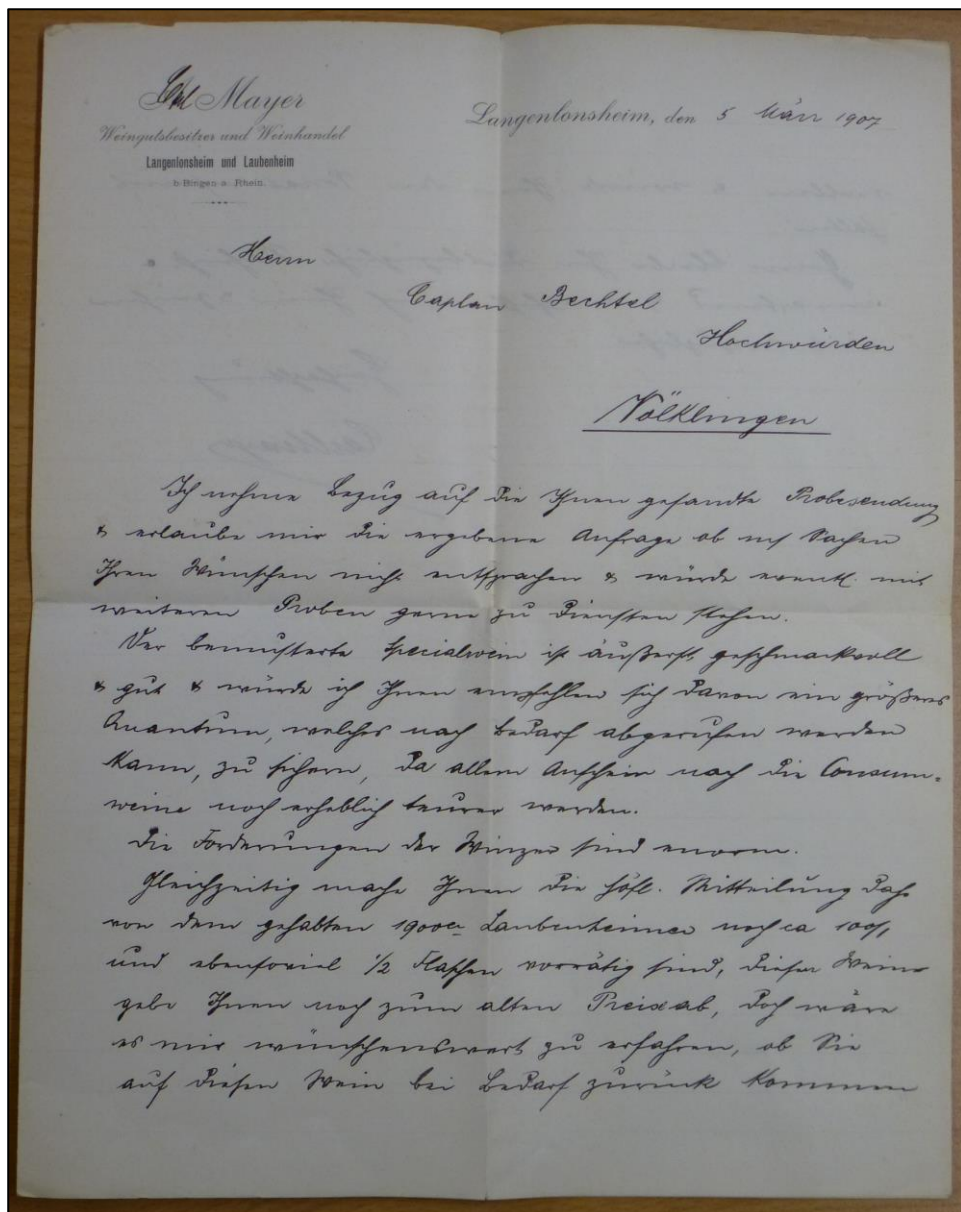 Carl Mayer
Weingutsbesitzer und Weinhandel
Langenlonsheim und Laubenheim
b. Bingen a. Rhein.
Langenlonsheim, den 5 März 1907
Herrn
Caplan Bechtel
Hochwürden
Völklingen
Ich nehme Bezug auf die Ihnen gesandte Probesendung
& erlaube mir die ergebene Anfrage ob Sachen
Ihren Wünschen nicht entsprachen & würde eventl. mit
weiteren Proben gerne zu Diensten stehen.
Der bemusterte Specialwein ist äußerst geschmackvoll
& gut & würde ich Ihnen empfehlen sich davon ein größeres
Quantum, welches nach Bedarf abgerufen werden
kann, zu sichern, da allem Anschein nach die Consum-
weine noch erheblich teurer werden.
Die Forderungen der Winzer sind enorm.
Gleichzeitig mache Ihnen die höfl. Mitteilung daß
von dem gehabten 1900er Laubenheimer noch ca 100/1
und ebensoviel 1/2 Flaschen vorrätig sind, diesen Wein
gebe Ihnen noch zum alten Preise ab, doch wäre
es mir wünschenswert zu erfahren, ob Sie
auf diesen Wein bei Bedarf zurück kommen